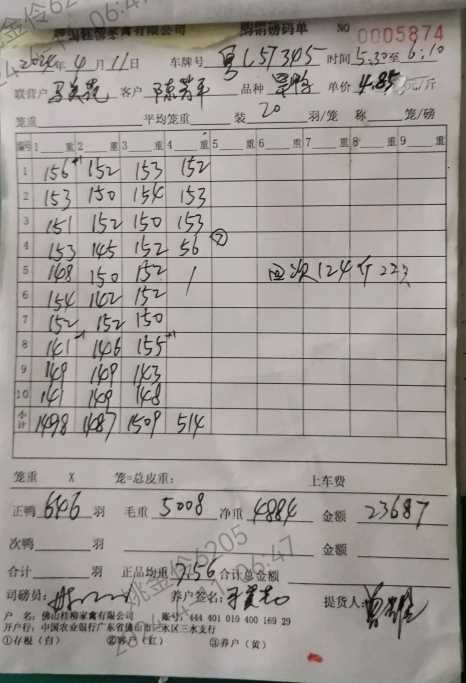 佛山桂柳家禽有限公司 购销磅码单 NO 0005874
2024年4月11日 车牌号 粤L57345 时间 5:30至6:10
联营户 客户 陈芳平 品种 单价 4.85元/斤
笼重 平均笼重 装 20 羽/笼 称 笼/磅
编号 1 重 2 重 3 重 4 重 5 重 6 重 7 重 8 重 9 重
1 156+1 152 153 152
2 153 150 154 153
3 151 152 150 153
4 153 145 152 56 ②
5 148 150 152 / 回次124斤22只
6 154 142 152
7 152 152 150
8 141 146 155
9 149 149 143
10 141 149 148
小计 1498 1487 1509 514
笼重 X 笼=总皮重: 上车费
正鸭 646 羽 毛重 5008 净重 4884 金额 23687
次鸭 羽 金额
合计 羽 正品均重 7.56 合计总金额
司磅员: 养户签名: 提货人:
户 名: 佛山桂柳家禽有限公司 账号: 444 401 010 400 169 29
开户行: 中国农业银行广东省佛山市三水区三水支行
①存根(白) ②客户(红) ③养户(黄)
姚金伶6205
06:47